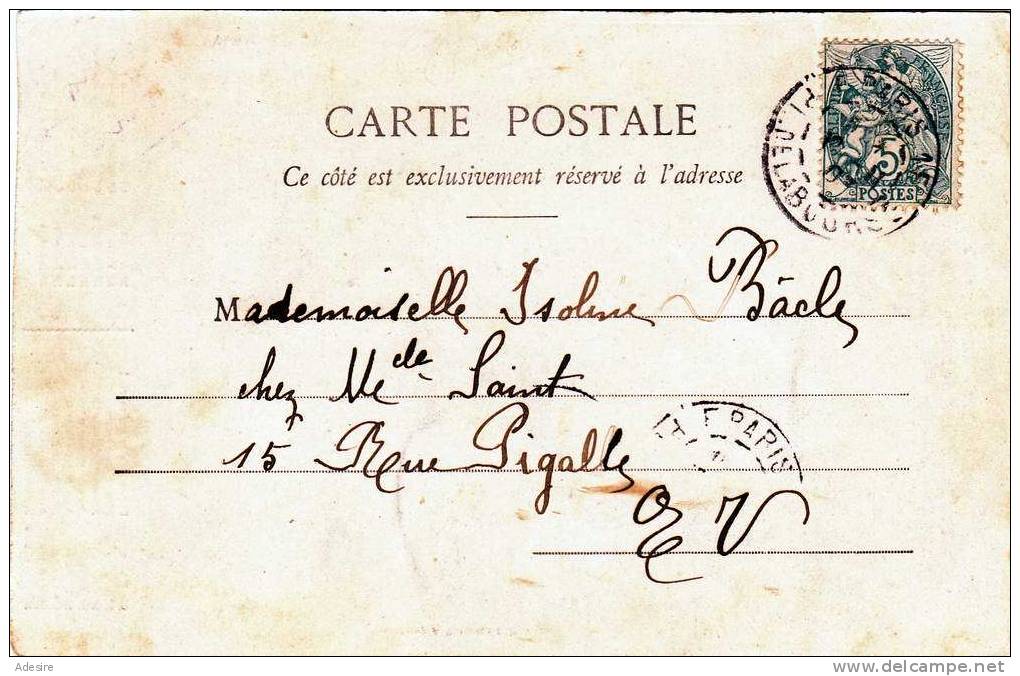 CARTE POSTALE
Ce côté est exclusivement réservé à l'adresse
PARIS
POSTES
5
Mademoiselle Isoline Bâcle
chez Me de Saint
15 Rue Pigalle
E V
PARIS
Adesire
delcampe.net